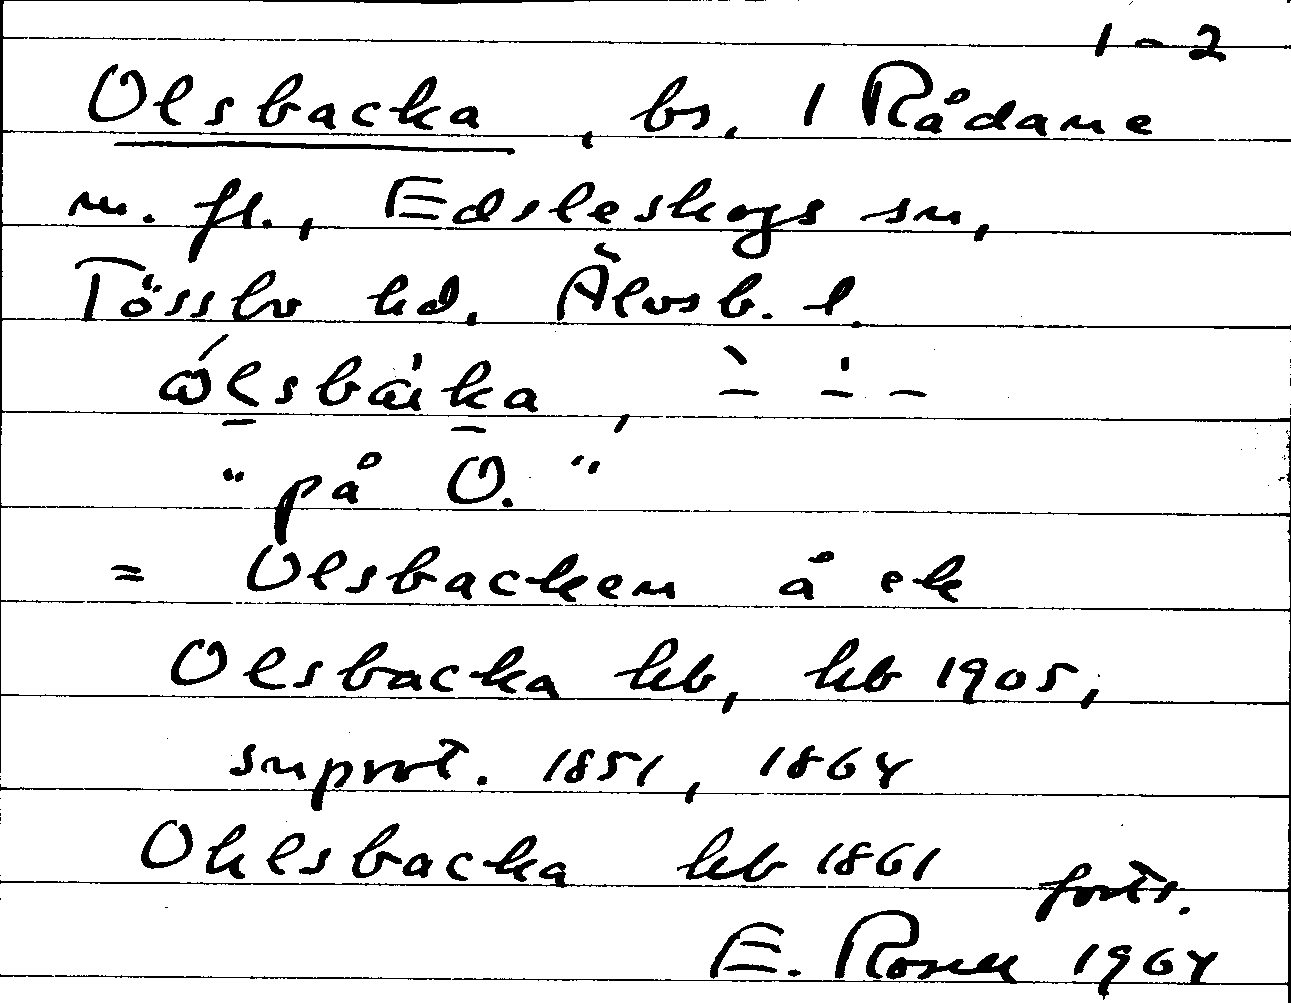 1-2
Olsbacka, bs. 1 Rådane
m. fl., Edsleskogs sn,
Tössbo hd. Älvsb. l.
" på O. "
= Olsbacken å ek
Olsbacka kb, hb 1905,
snprot. 1851, 1864
Ohlsbacka hb 1861
forts.
E. Rosell 1964